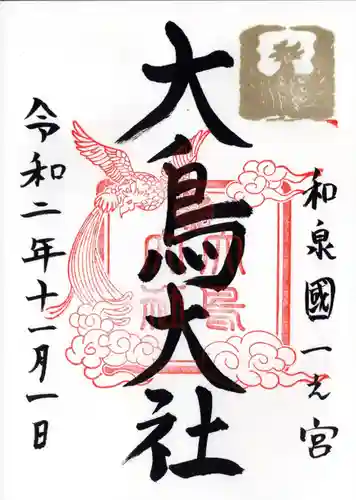 和泉國一之宮
大鳥大社
令和二年十一月一日